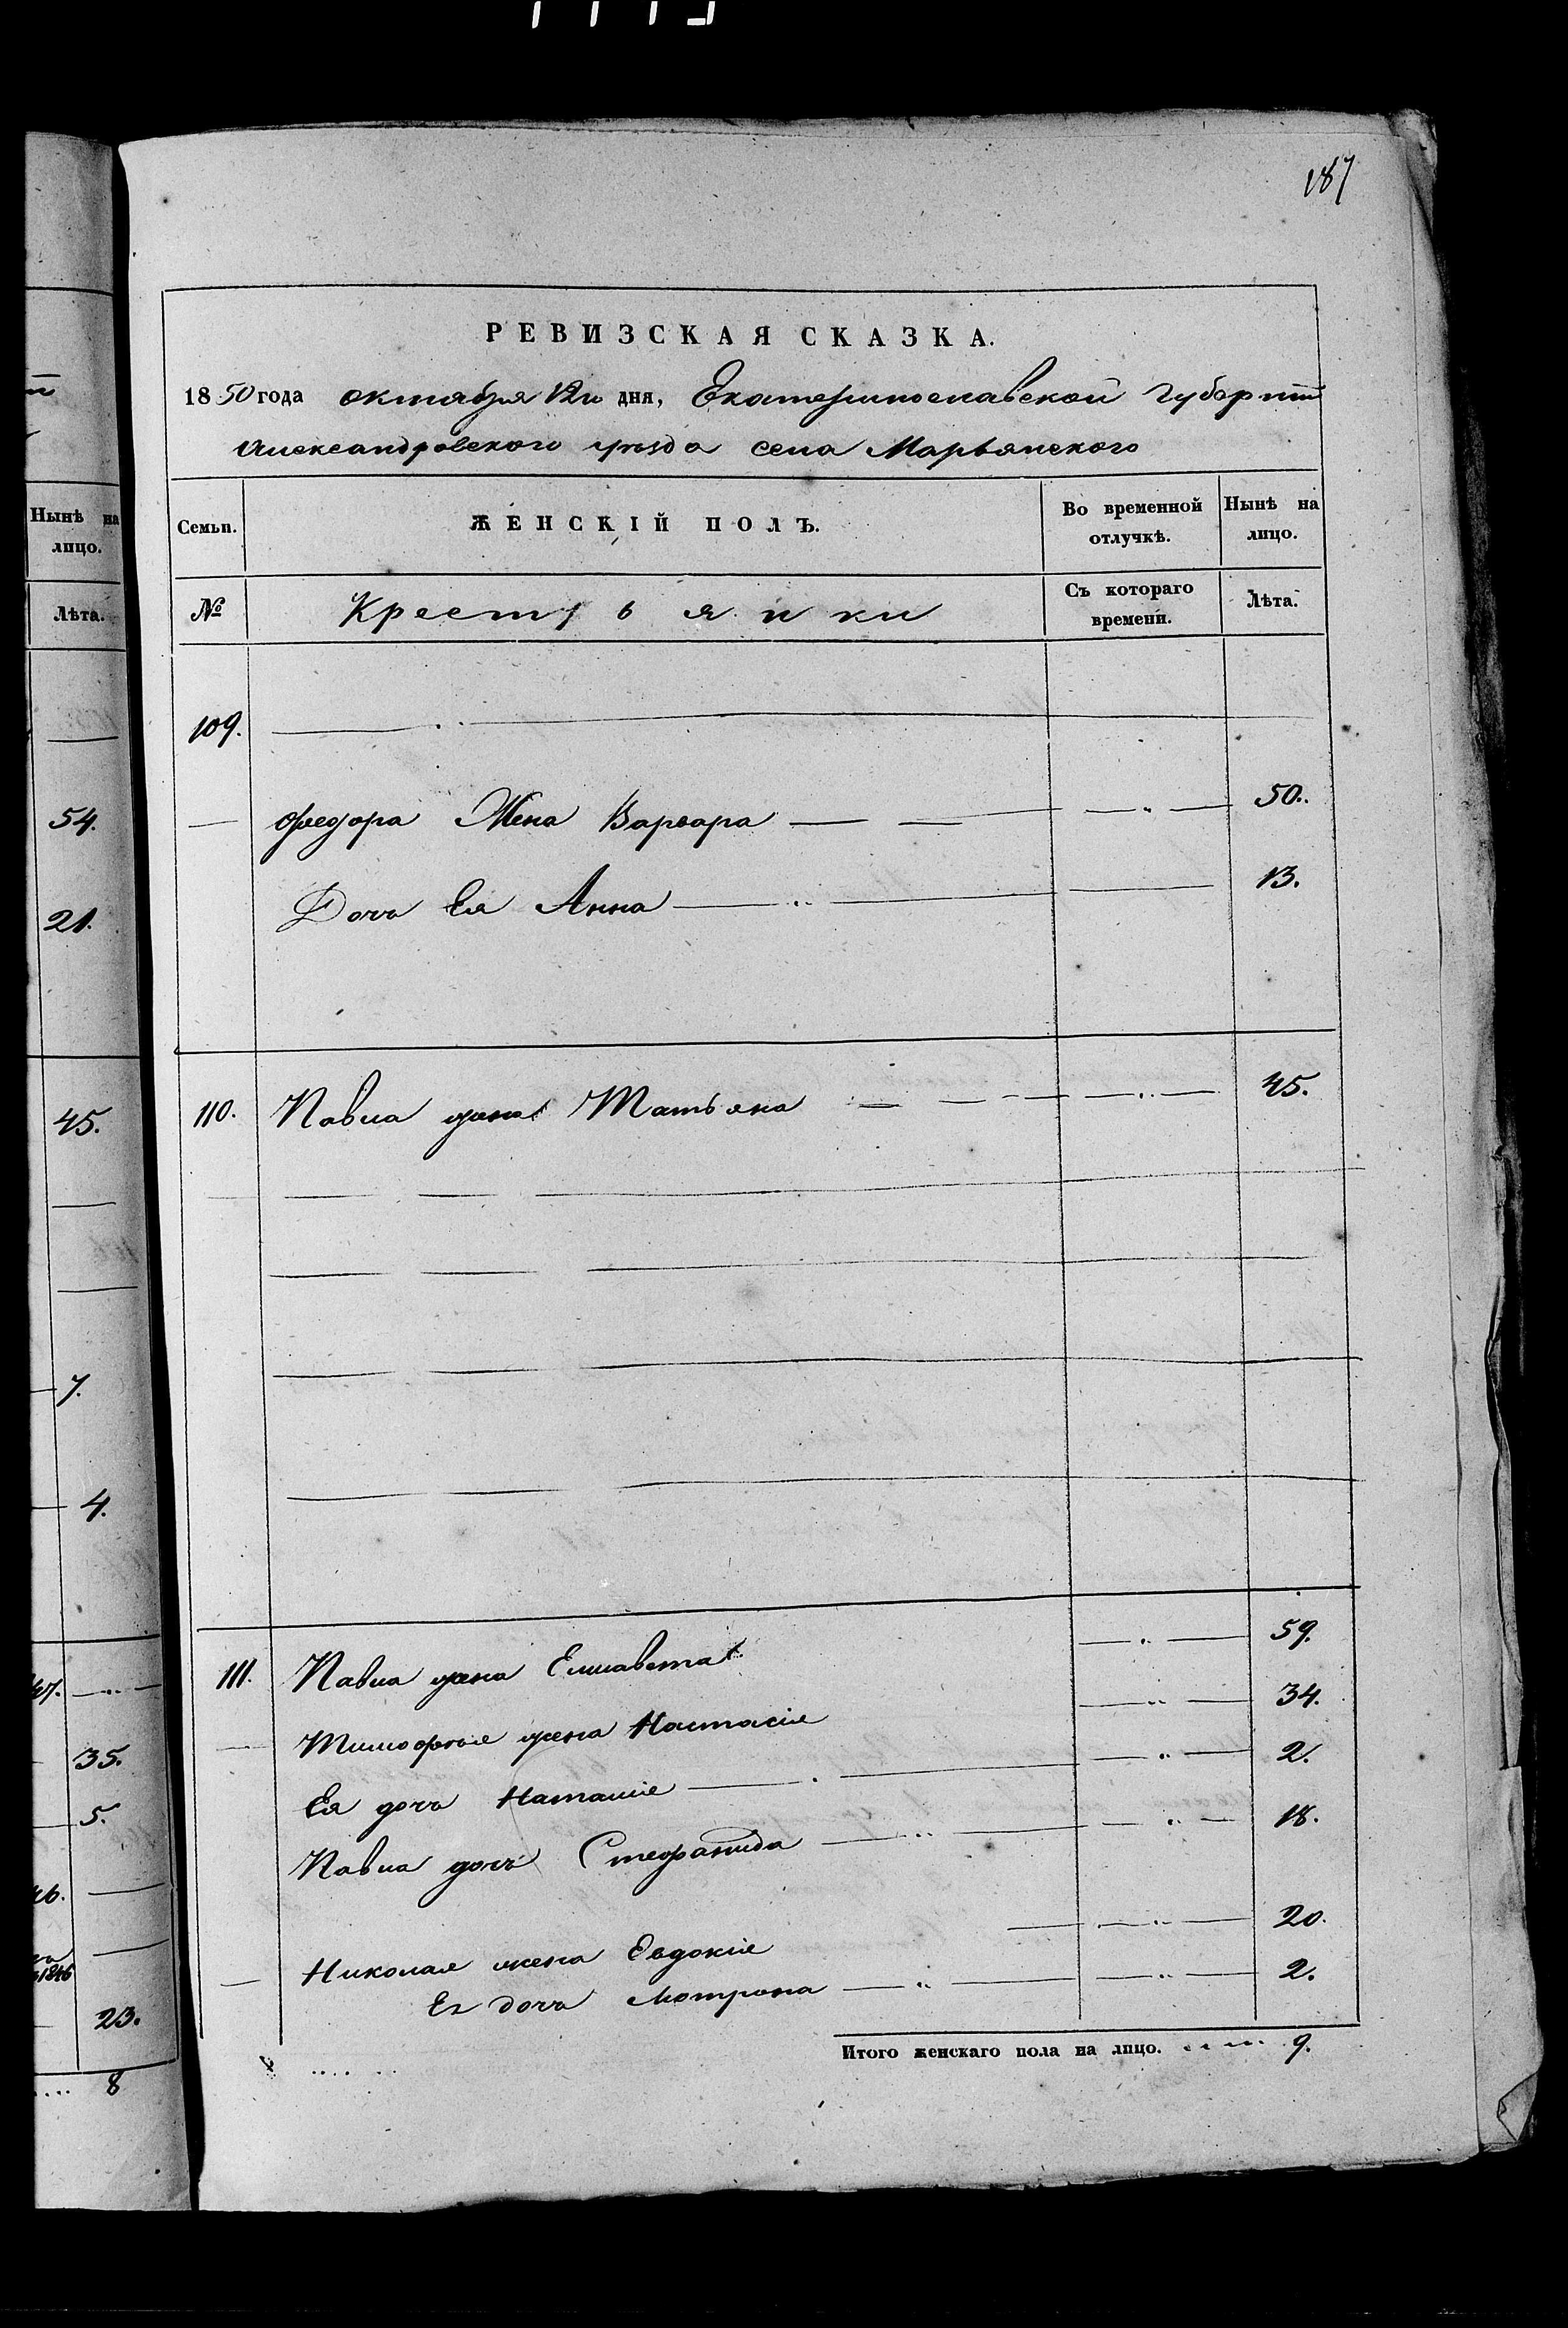 187
РЕВИЗСКАЯ СКАЗКА.
1850 года октября 12го дня, Екатеринославской Губернии
Александровского уезда села Марьянского
Нынѣ на лицо.
Лѣта.
54.
21.
45.
7.
4.
47.
35.
5.
46.
1846
23.
8
Семьи. ЖЕНСКІЙ ПОЛЪ. Во временной отлучкѣ. Нынѣ на лицо.
№ Крестьянки Съ котораго времени. Лѣта.
109.
Федора Жена Варвара 50.
Дочь Ея Анна 13.
110. Павла жена Татьяна 45.
111. Павла жена Елисавета 59.
Тимофея жена Настасія 34.
Ея дочь Наталія 2.
Павла дочь Стефанида 18.
Николая жена Евдокія 20.
Ея дочь Мотрона 2.
Итого женскаго пола на лицо. 9.